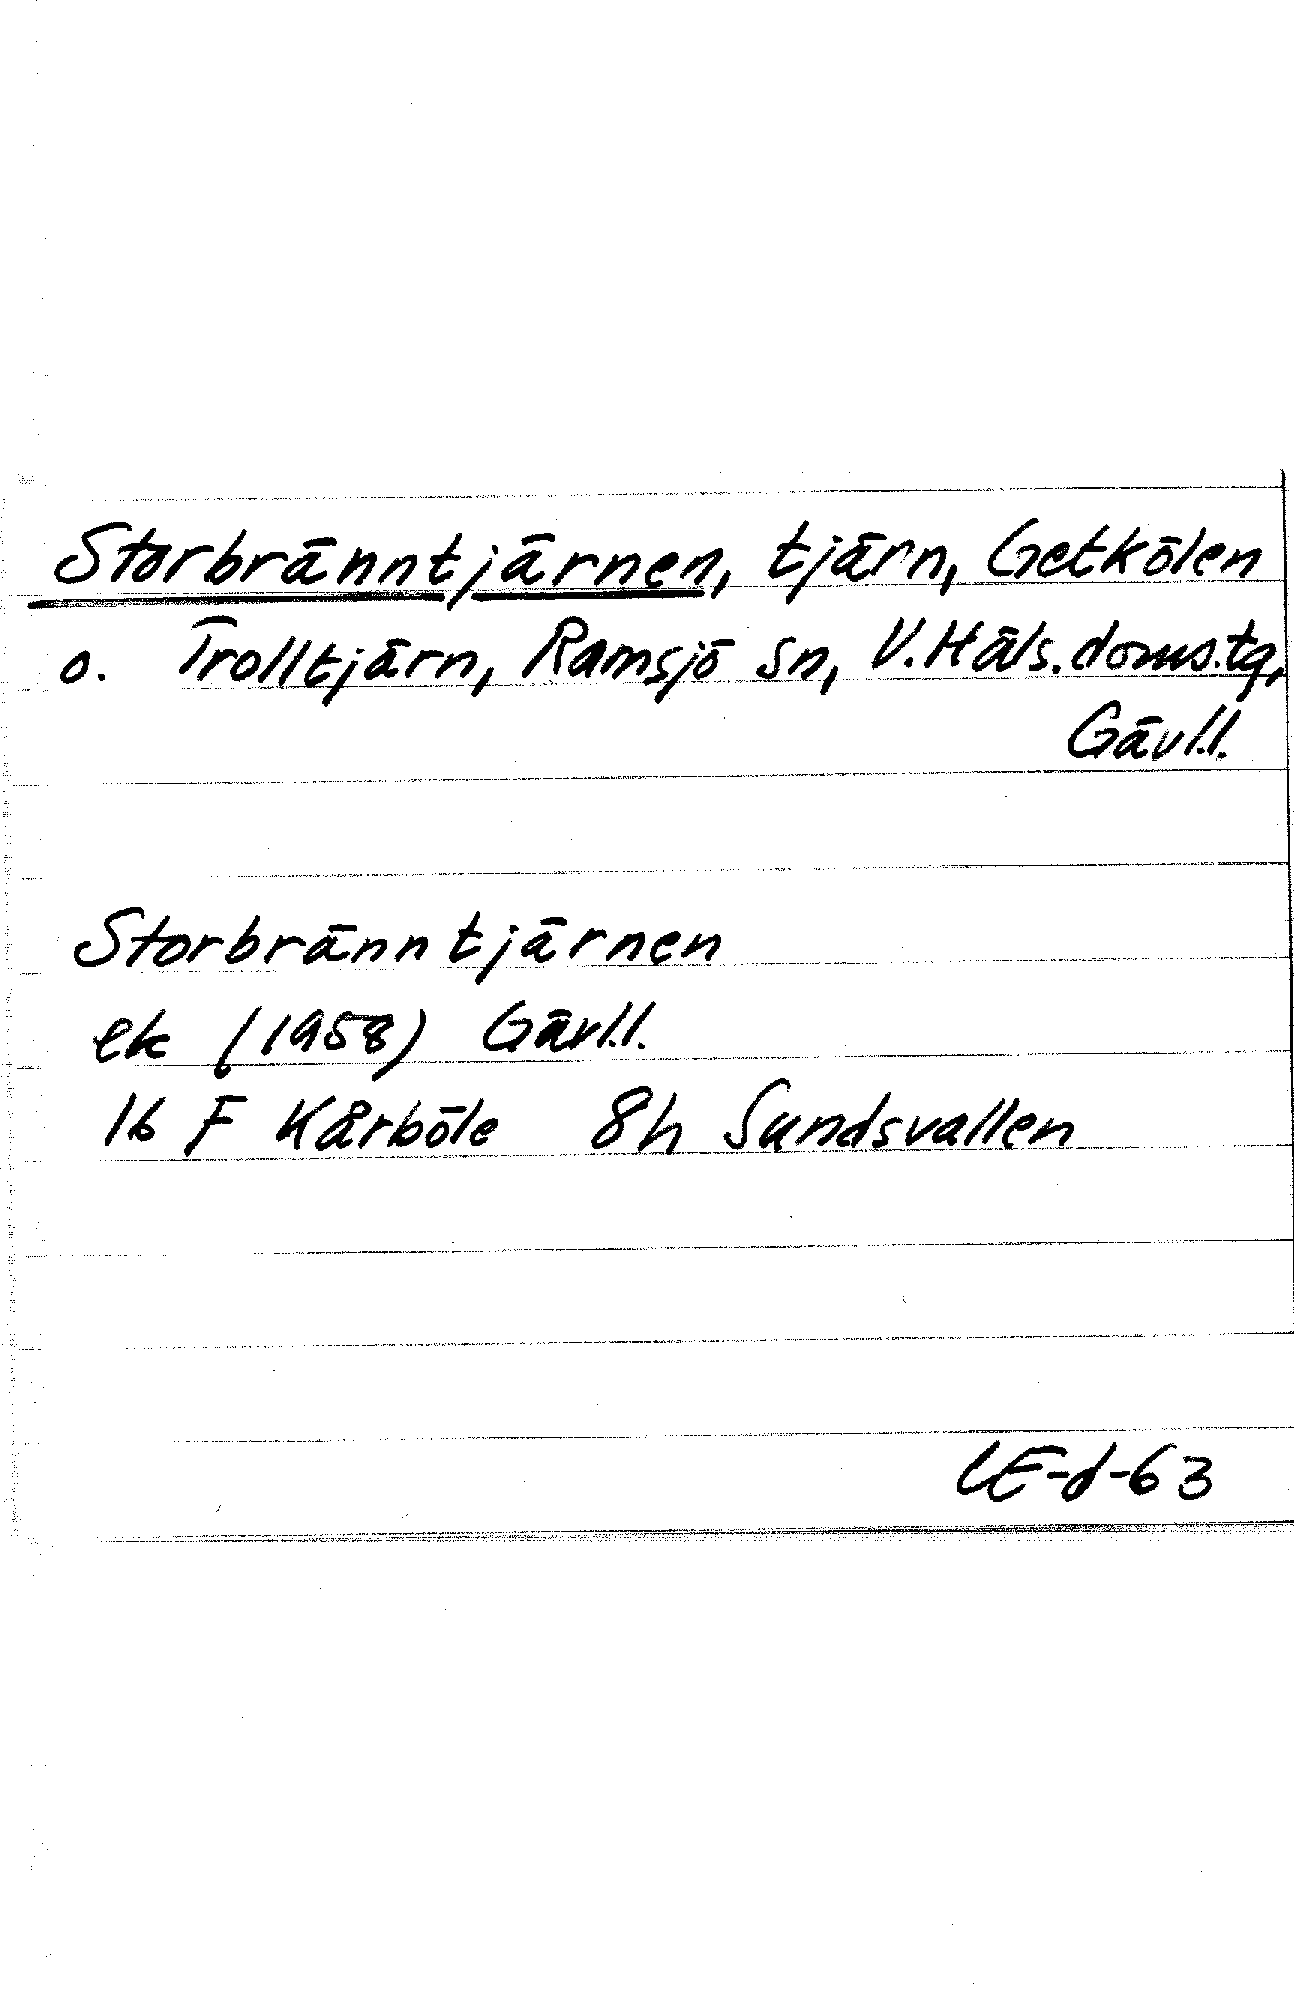 Storbränntjärnen, tjärn, Getkölen
o. Trolltjärn, Ramsjö sn, V. Häls. doms.tg,
Gävl.l.
Storbränntjärnen
ek (1958) Gävl.l.
16 F Kårböle 8h Sundsvallen
LE-d-63